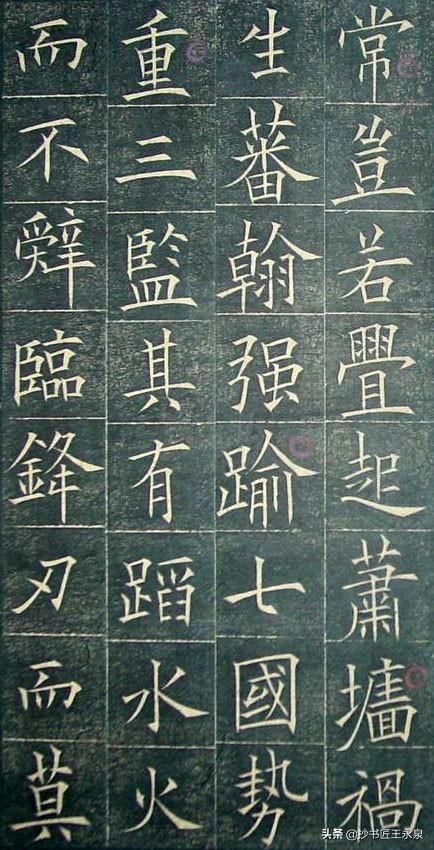 常豈若疊起蕭墻禍
生蕃翰强踰七國勢
重三監其有蹈水火
而不辤臨鋒刃而莫
头条 @抄书匠王永泉